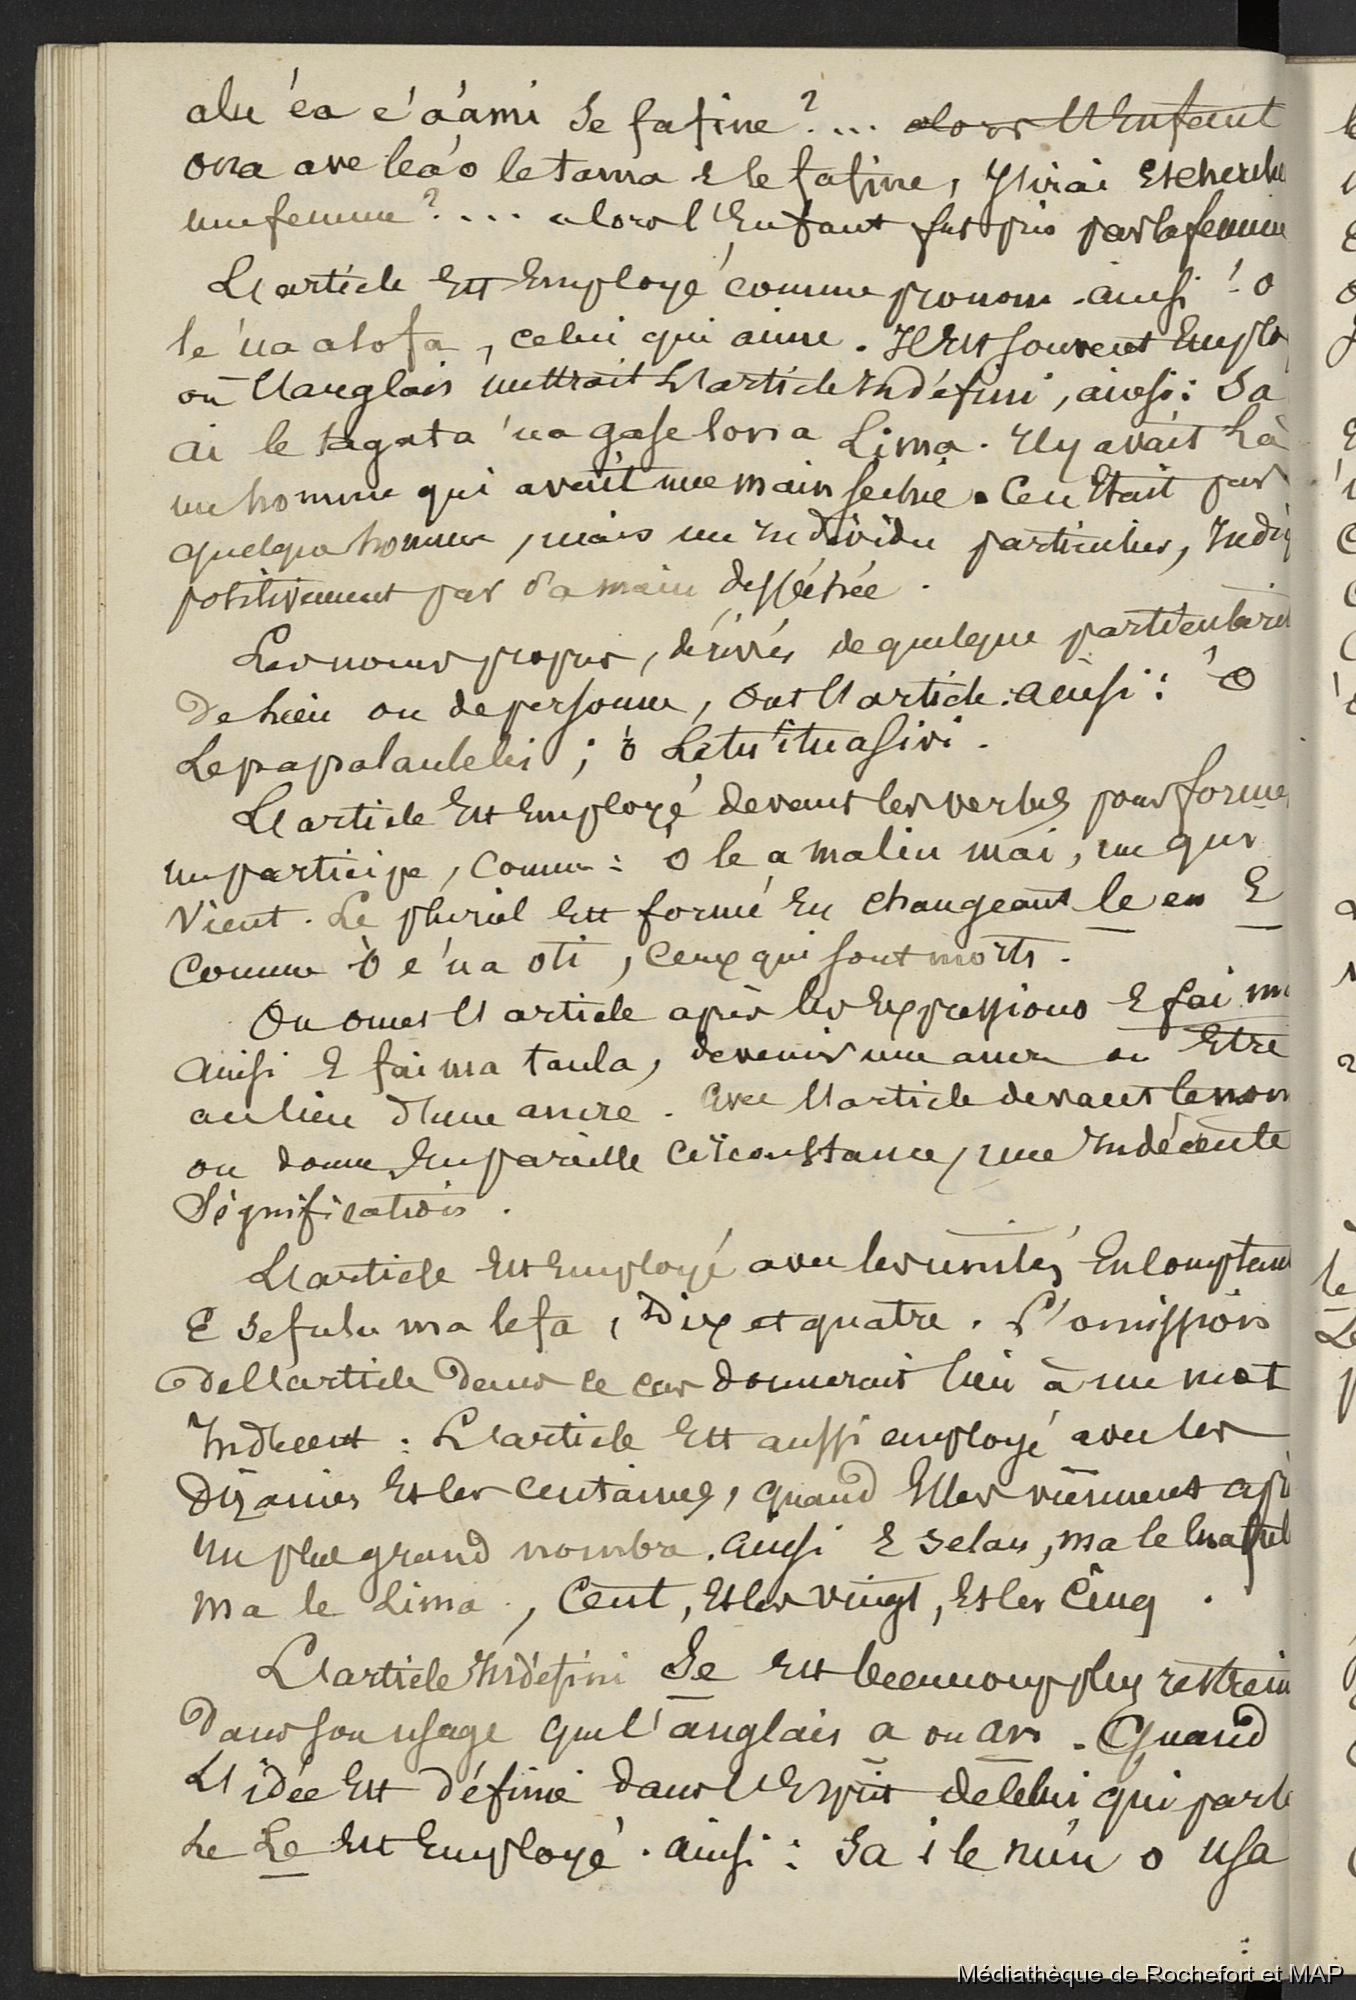 alu éa é a'ami se fafine?... alors l'Enfant
ona ave leá'o le tama E le fafine, J'irai Et cherche
une femme?.... alors l'Enfant fut pris par la femme
L'article Est Employé comme pronom. ainsi 'o
le 'ua alofa, celui qui aime. Il Est souvent Emplo
où l'anglais mettrait l'article Indéfini, ainsi: Sa
ai le tagata 'ua gase lona Lima. Il y avait Là
un homme qui avait une main séchée. Ceci Etait pas
quelque homme, mais un Individu particulier, Indiq
positivement par sa main desséchée.
Les noms propres, dérivés de quelque particularit
De lieu ou de personne, ont l'article. Ainsi: 'O
Lepapalaulelei; 'o Letu'ituasivi.
L'article Est Employé devant les verbes pour forme
un participe, Comme: o le a maliu mai, un qui
Vient. Le pluriel Est formé En changeant le en E
Comme 'O é 'ua oti, Ceux qui sont morts.
On omet l'article après les Expressions E fai ma
ainsi E fai ma taula, devenir une ancre ou Etre
au lieu d'une ancre. avec l'article devant le nom
on donne, En pareille Circonstance, une Indécente
Signification.
L'article Est Employé avec les unités En Comptant
E sefulu ma le fa, Dix et quatre. L'omission
de l'article Dans ce cas donnerait lieu à un mot
Indécent: L'article Est aussi employé avec les
Dizaines Et les Centaines, quand Elles viennent apr
un plus grand nombre. Ainsi E selau, ma le luaful
ma le Lima, Cent, Et les vingt, Et les Cinq.
L'article Indéfini Se Est beaucoup plus restrein
Dans son usage que l'anglais a ou an. Quand
L'idée Est définie dans l'Esprit de Celui qui parle
Le Le Est Employé. ainsi: Sa i le nu'u o Usa
Médiathèque de Rochefort et MAP